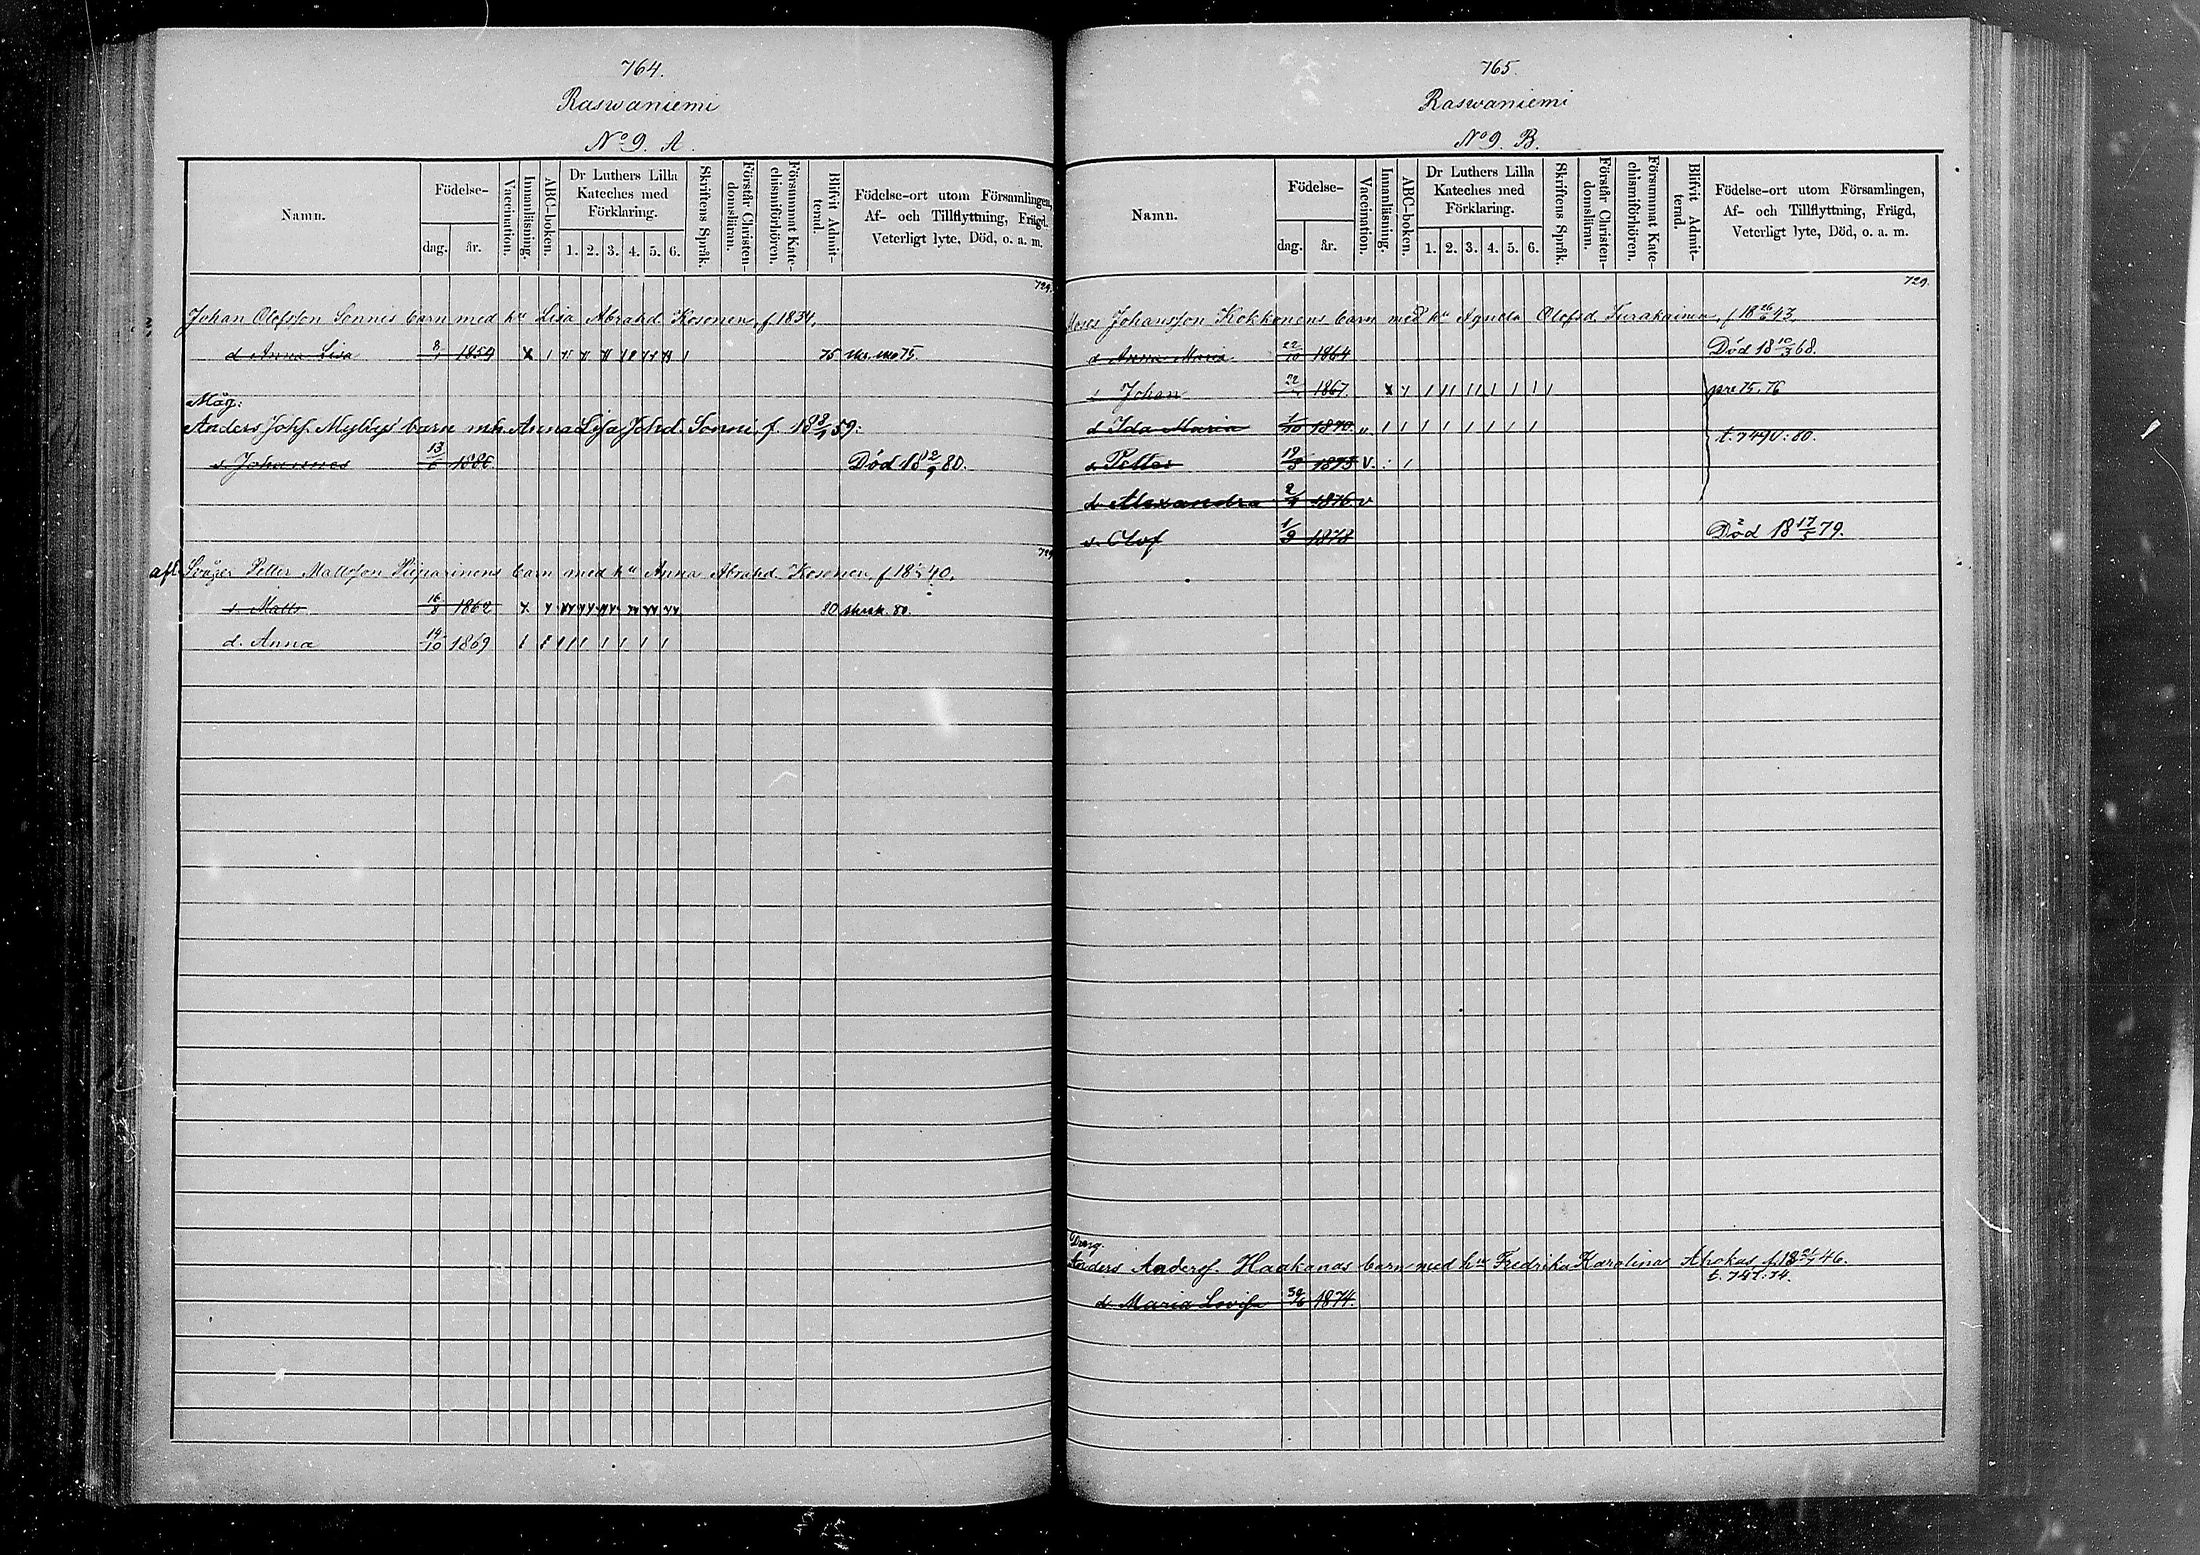 764.
Raswaniemi
No 9. A.
Namn.
Födelse-
dag. år.
Vaccination.
Innanläsning.
ABC-boken.
Dr Luthers Lilla Kateches med Förklaring.
1. 2. 3. 4. 5. 6.
Skriftens Språk.
Förstår Christen-domsläran.
Försummat Kate-chismiförhören.
Blifvit Admit-terad.
Födelse-ort utom Församlingen,
Af- och Tillflyttning, Frägd.
Veterligt lyte, Död, o. a. m.
729.
Johan Olofsson Sonnis barn med hu Lisa Abrahd. Kosonen, f. 1834.
d. Anna Lisa 8/1 1859 75 75.
Måg:
Anders Johs. Myllys barn m.h. Anna Lisa Johd. Sonni, f. 18 8/1 59:
s. Johannes 13/6 1880 Död 18 12/9 80.
729
Svåger Petter Mattsson Piiparinens barn med hu Anna Abrahd. Kosonen, f. 18 40.
s. Matts 16/8 1862 80 80.
d. Anna 14/10 1869
765.
Raswaniemi
No 9. B.
Namn.
Födelse-
dag. år.
Vaccination.
Innanläsning.
ABC-boken.
Dr Luthers Lilla Kateches med Förklaring.
1. 2. 3. 4. 5. 6.
Skriftens Språk.
Förstår Christen-domsläran.
Försummat Kate-chismiförhören.
Blifvit Admit-terad.
Födelse-ort utom Församlingen,
Af- och Tillflyttning, Frägd,
Veterligt lyte, Död, o. a. m.
729.
Moses Johansson Kokkonens barn med hu Agneta Olofsd. Turakainen, f. 18 26/6 43.
d. Anna Maria 22/10 1864 Död 18 10/3 68.
s. Johan 1867. pre 75. 76
d. Ida Maria 1/10 1870 t. 749 v: 80.
s. Petter 19/3 1873 v.
d. Alexandra 2/4 1876 v
s. Olof 1/9 1878 Död 18 17/5 79.
Dreng
Anders Anders. Haakanas barn med hu Fredrika Karolina Ahokas, f. 18 21/7 46.
t. 747. 74.
d. Maria Lovisa 30/6 1874.